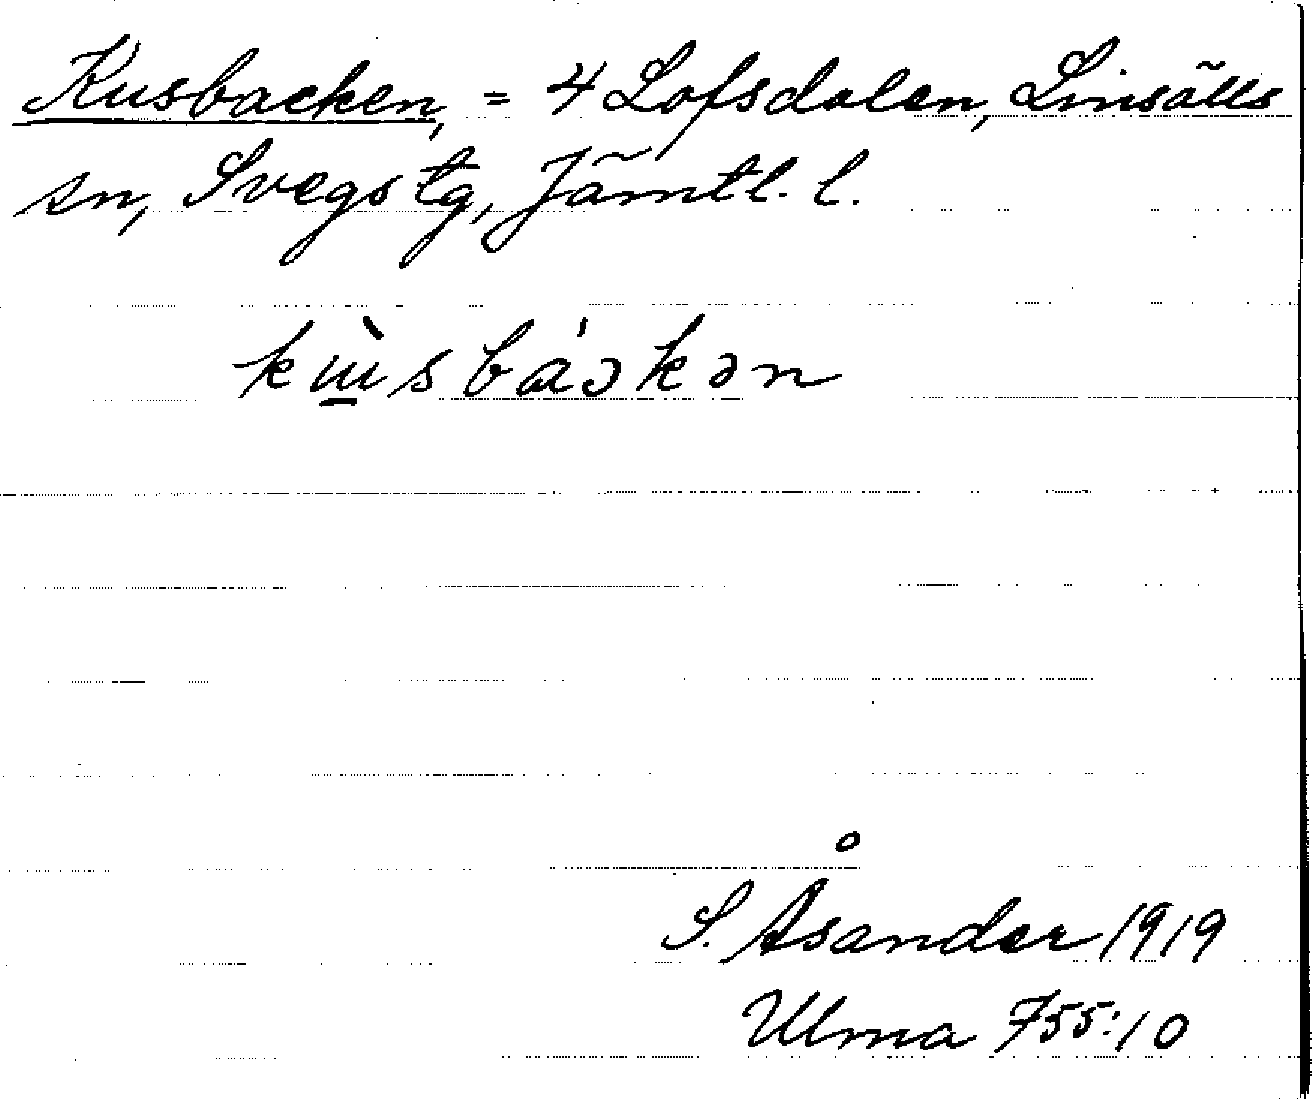 Kusbacken, = 4 Lofsdalen, Linsälls
sn, Svegs tg, Jämtl. l.
kɯ̱̀sbáɔkən
S. Åsander 1919
Ulma 755:10